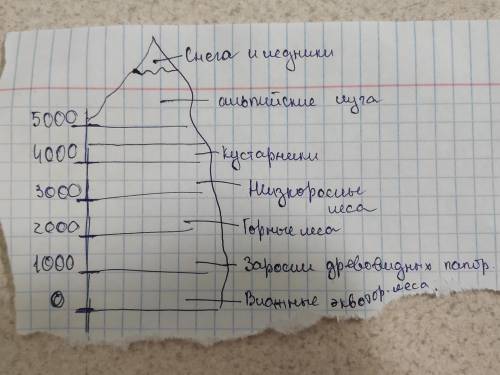 Снега и ледники
альпийские луга
5000
4000
кустарники
3000
Низкорослые
леса
2000
Горные леса
1000
Заросли древовидных папор.
0
Влажные экватор. леса.